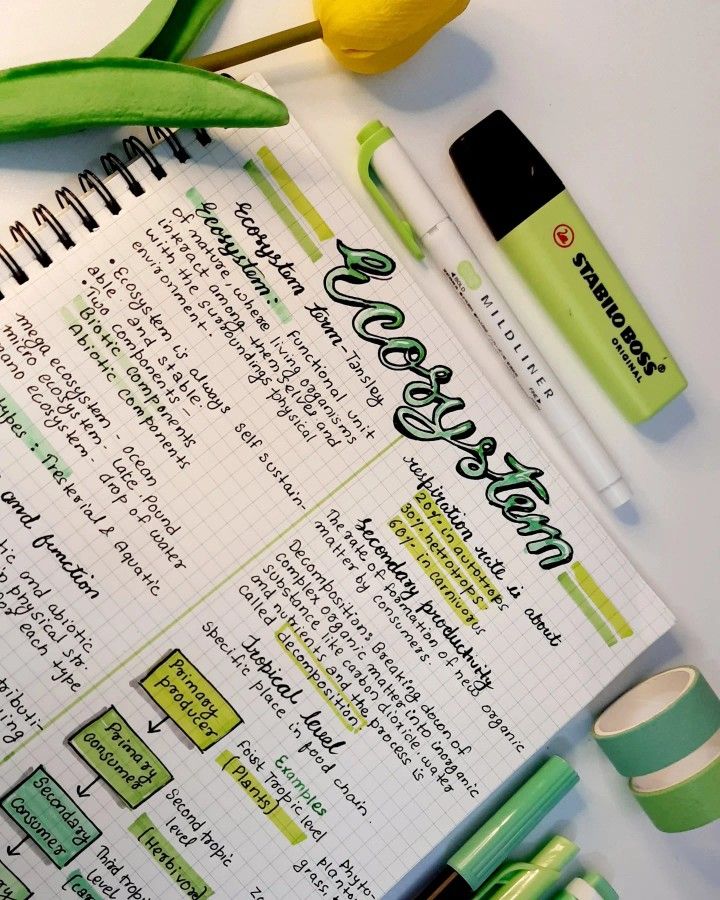 Ecosystem
Ecosystem term - Tansley
Ecosystem: Functional unit
of nature, where living organisms
interact among themselves and
with the surroundings physical
environment.
• Ecosystem is always self sustain-
able and stable.
• Two components -
Biotic components
Abiotic Components
mega ecosystem - ocean
micro ecosystem - Lake, Pound
nano ecosystem - drop of water
Types: Tresterial & Aquatic
and function
tic and abiotic
physical str.
or each type
tributi-
uing
respiration rate is about
20% in autotrops
30% hetrotrops
60% in carnivorus
Secondary productivity
The rate of formation of new organic
matter by consumers.
Decomposition: Breaking down of
complex organic matter into inorganic
substance like carbon dioxide, water
and nutrients and the process is
called decomposition.
Tropical level
Specific place in food chain.
Examples
Primary
producer
Foist Tropic level
(Plants)
Primary
consumer
Second tropic
level
(Herbivor
Secondary
Consumer
Third tropi
level
Phyto-
plankto
grass, t
MILDLINER
STABILO BOSS®
ORIGINAL